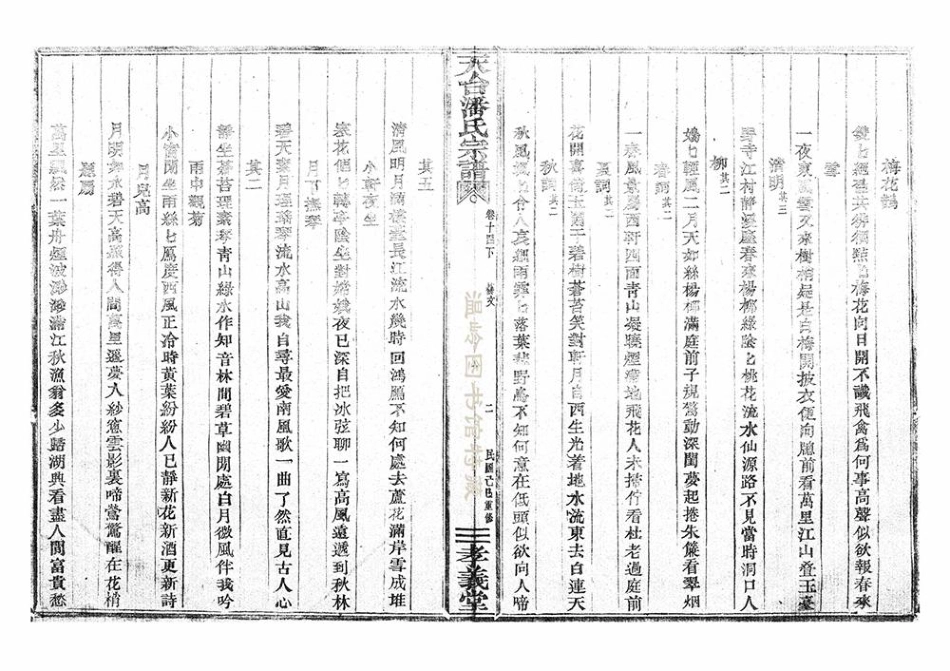 梅花鶴
梅花向日開不識飛禽為何事高聲似欲報春來
雪
一夜東風雪又來樹梢是是白梅開披衣便向窗前看萬里江山疊玉臺
清明其三
野寺江村靜裡廬春來楊柳綠陰七桃花流水仙源路不見當時洞口人
柳其二
嬌七輕風二月天如絲楊柳滿庭前子規驚動深閨夢起捲朱簾看翠烟
春詞其二
一春風景屬西
四面青山
煙
地飛花人未掃竹看杜老過庭前
夏詞其二
花開喜傍五
碧樹蒼苔笑對軒月自西生光着地水流東去白連天
秋詞其二
秋風
七令人哀細雨霏七落葉
野鳥不知何意在低頭似欲向人啼
天台潘氏宗譜
卷十四下
詩文
二
民國己巳重修
孝義堂
其五
清風明月滿樓臺長江流水幾時回鴻雁不知何處去蘆花滿岸雪成堆
小軒夜坐
七轉亭陰坐對嫦娥夜已深自把冰弦聊一寫高風遠遞到秋林
月下撫琴
碧天秦月理瑤琴流水高山我自尋最愛南風歌一曲了然直見古人心
其二
靜坐蒼苔理素琴青山綠水作知音林間碧草幽閒處白月微風伴我吟
雨中觀菊
小窗閒坐雨絲七鴈度西風正洽時黃葉紛紛人已靜新花新酒更新詩
月兒高
月明如水碧天高
得人間萬里遙夢入紗窗雲影裏啼鶯驚醒在花梢
題扇
萬里風
一葉舟煙波渺渺滿江秋漁翁多少踏湖興看盡人間富貴愁